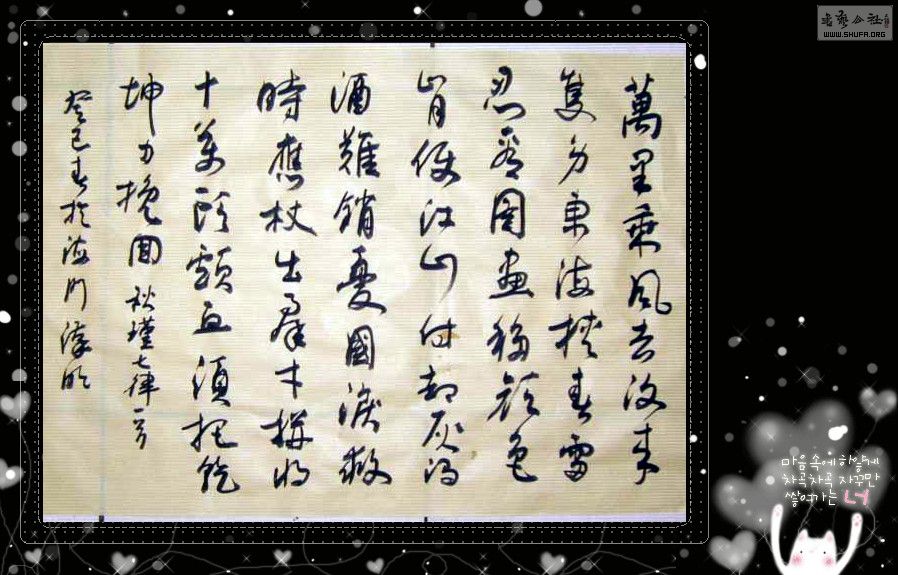 萬里乘風去復来
隻身東海挾春雷
忍看圖畫移顏色
肯使江山付劫灰濁
酒難銷憂國淚救
時應杖出羣才拼將
十萬頭顱血須把乾
坤力挽回 秋瑾七律一首
癸巳春於海門
書藝公社
WWW.SHUFA.ORG
마음속에 하얗게
차곡차곡 자꾸만
쌓여가는 너